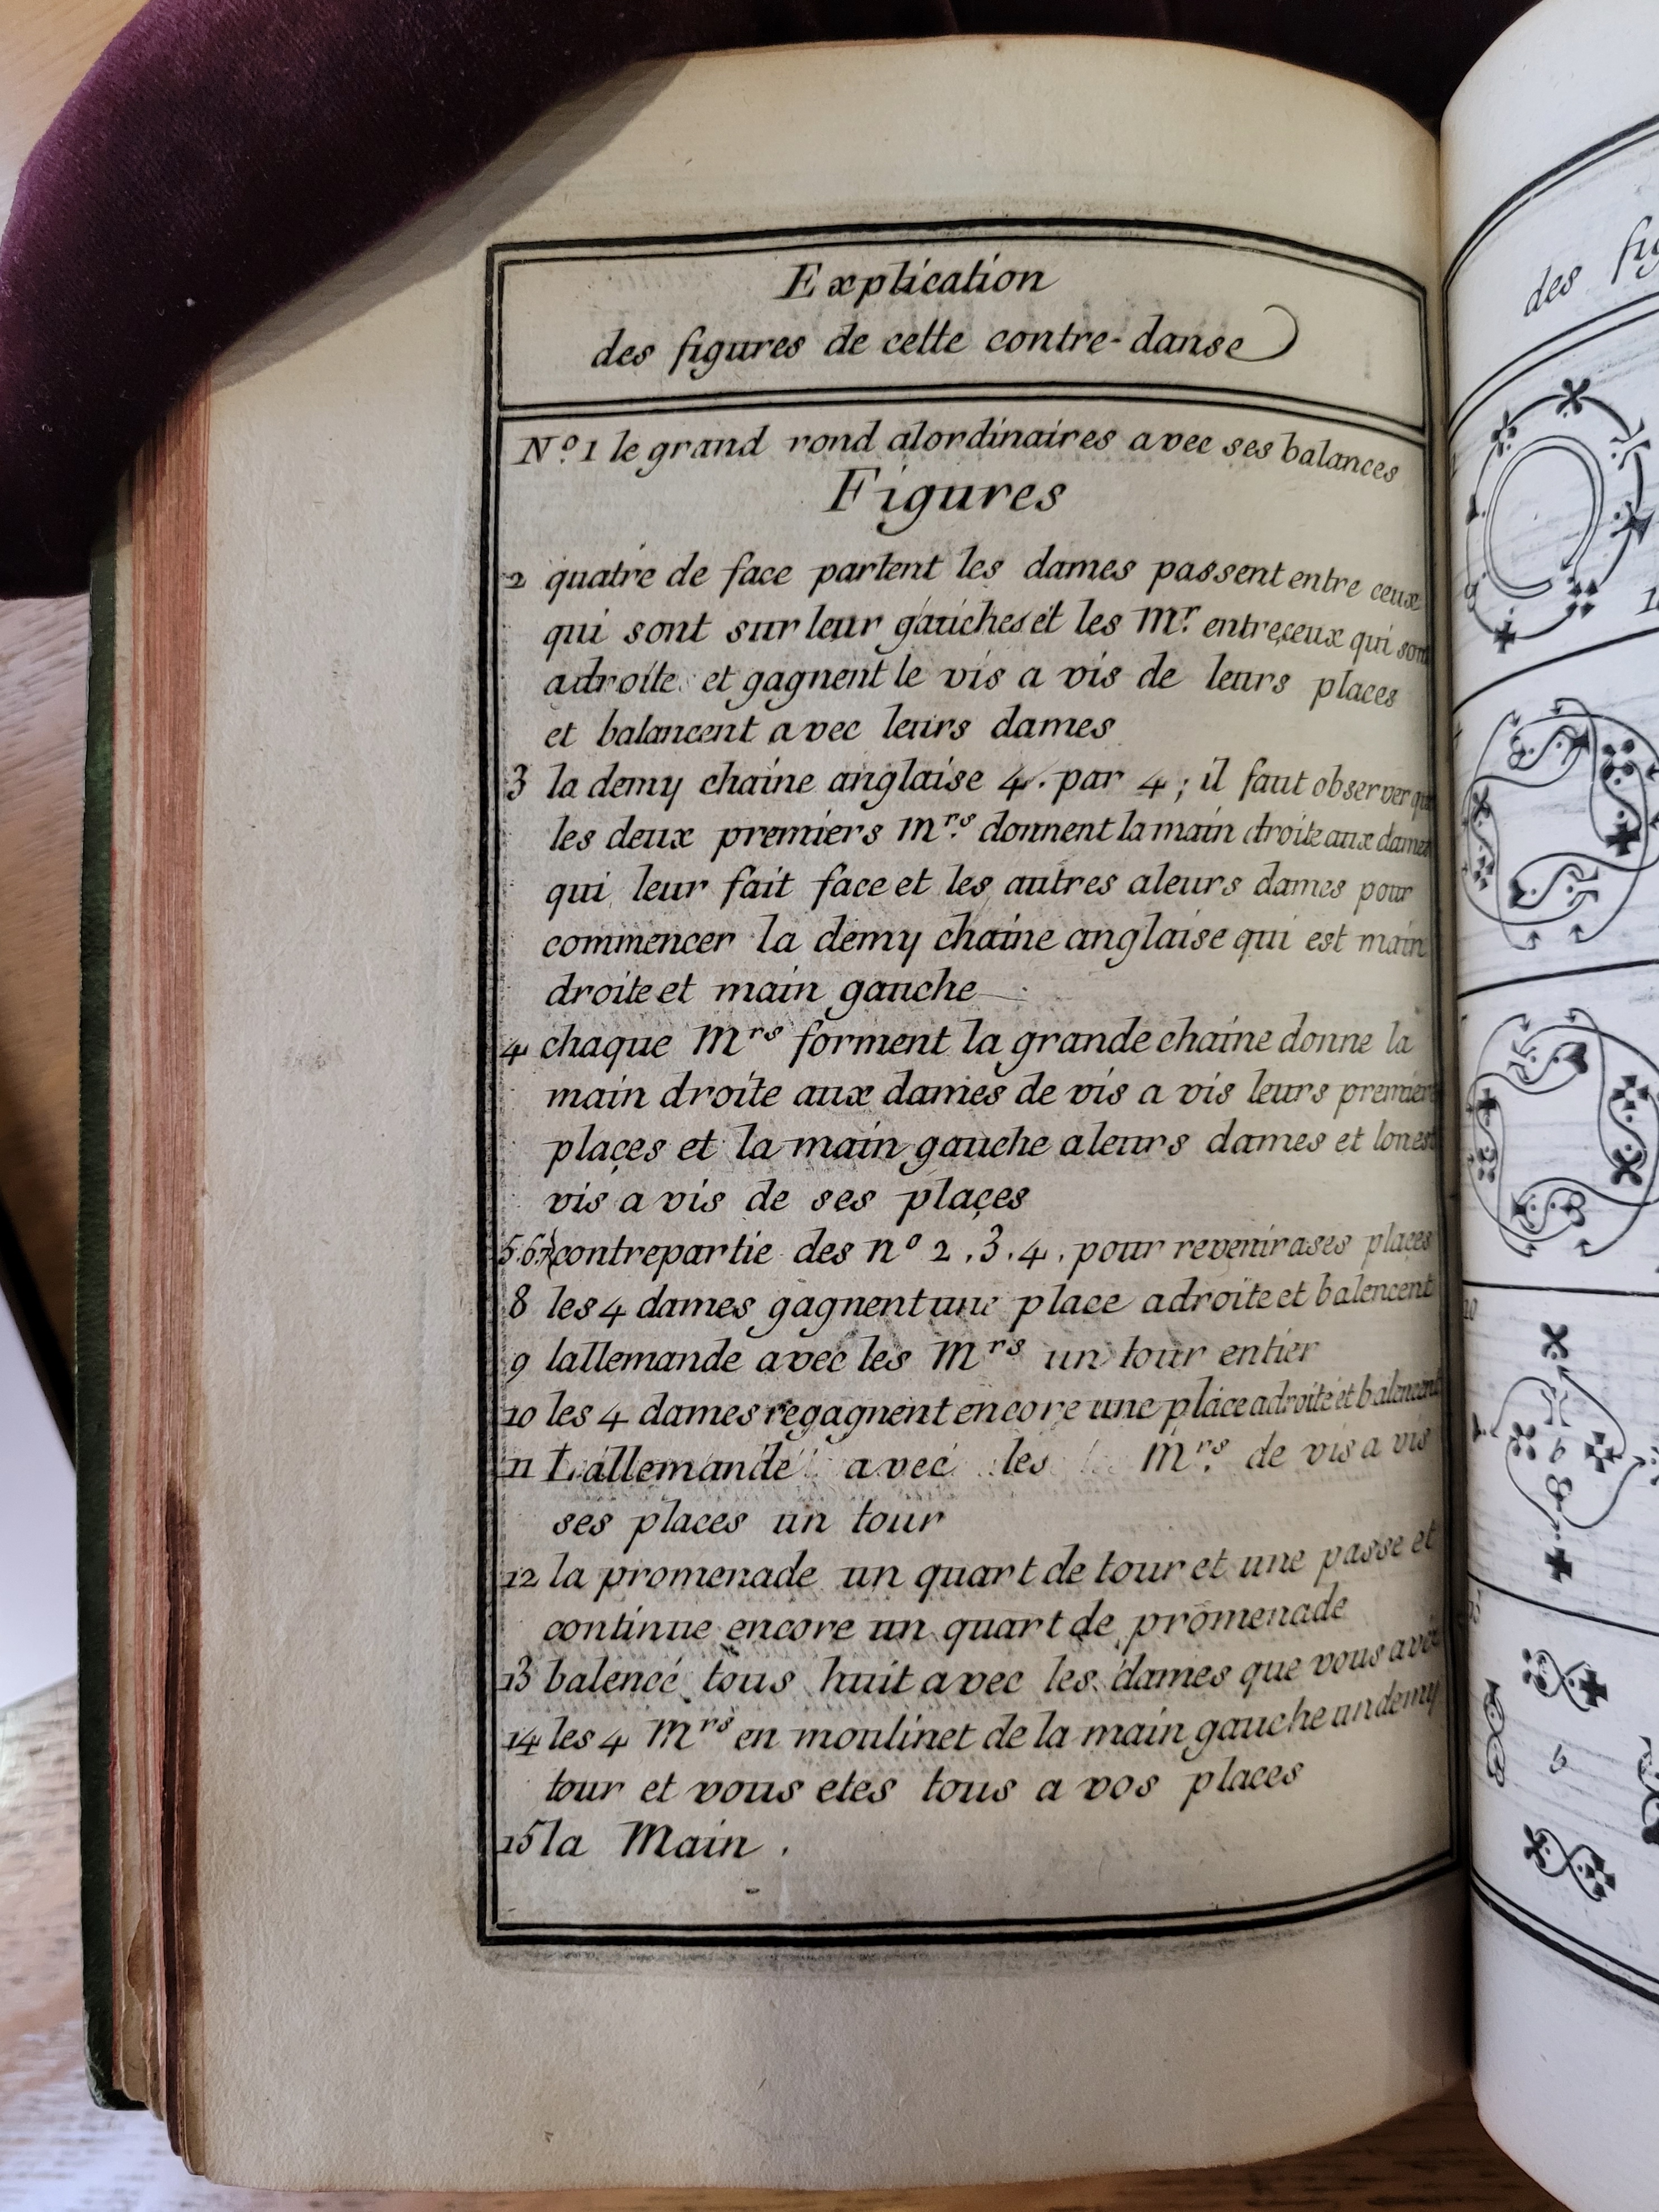 Explication
des figures de cette contre-danse
N.º 1 le grand rond alordinaires avec ses balances
Figures
2 quatre de face partent les dames passent entre ceux
qui sont sur leur gauches et les Mr. entre ceux qui sont
adroite et gagnent le vis a vis de leurs places
et balancent avec leurs dames
3 la demy chaine anglaise 4. par 4 ; il faut observer que
les deux premiers Mrs. donnent la main droite aux dames
qui leur fait face et les autres aleurs dames pour
commencer la demy chaine anglaise qui est main
droite et main gauche
4 chaque Mrs forment la grande chaine donne la
main droite aux dames de vis a vis leurs premier
plaçes et la main gauche aleurs dames et lonest
vis a vis de ses plaçes
5.6.7 contrepartie des nº 2.3.4. pour revenir ases places
8 les 4 dames gagnent une place adroite et balencent
9 lallemande avec les Mrs un tour entier
10 les 4 dames regagnent encore une place adroite et balencent
11 Lallemande avec les Mrs. de vis a vis
ses places un tour
12 la promenade un quart de tour et une passe et
continue encore un quart de promenade
13 balencé tous huit avec les dames que vous avez
14 les 4 Mrs en moulinet de la main gauche un demy
tour et vous etes tous a vos places
15 la Main .
des
10
b
b